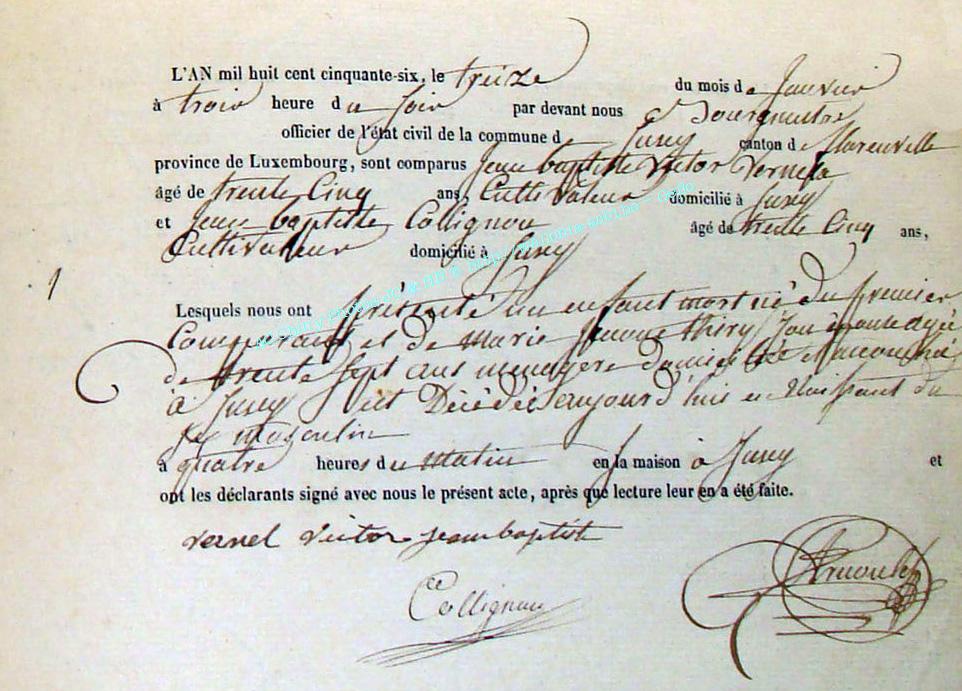 L'AN mil huit cent cinquante-six, le treize du mois de Janvier
à trois heure du Soir par devant nous Bourgmestre
officier de l'état civil de la commune d Jusey canton de
province de Luxembourg, sont comparus Jean baptiste Victor Vernel
âgé de trente Cinq ans, Cultivateur domicilié à Jusey
et Jean baptiste Collignon âgé de trente Cinq ans,
Cultivateur domicilié à Jusey
Lesquels nous ont présenté un enfant mort né du premier
Comparant et de Marie Jeanne thiry Son épouse agé
de trente Sept ans menagere domiciliée et accouchée
à Jusey est Décédé aujourd'hui en Naissant du
sex masculin
à quatre heures du Matin en la maison à Jusey et
ont les déclarants signé avec nous le présent acte, après que lecture leur en a été faite.
vernel victor jean baptist
Collignon